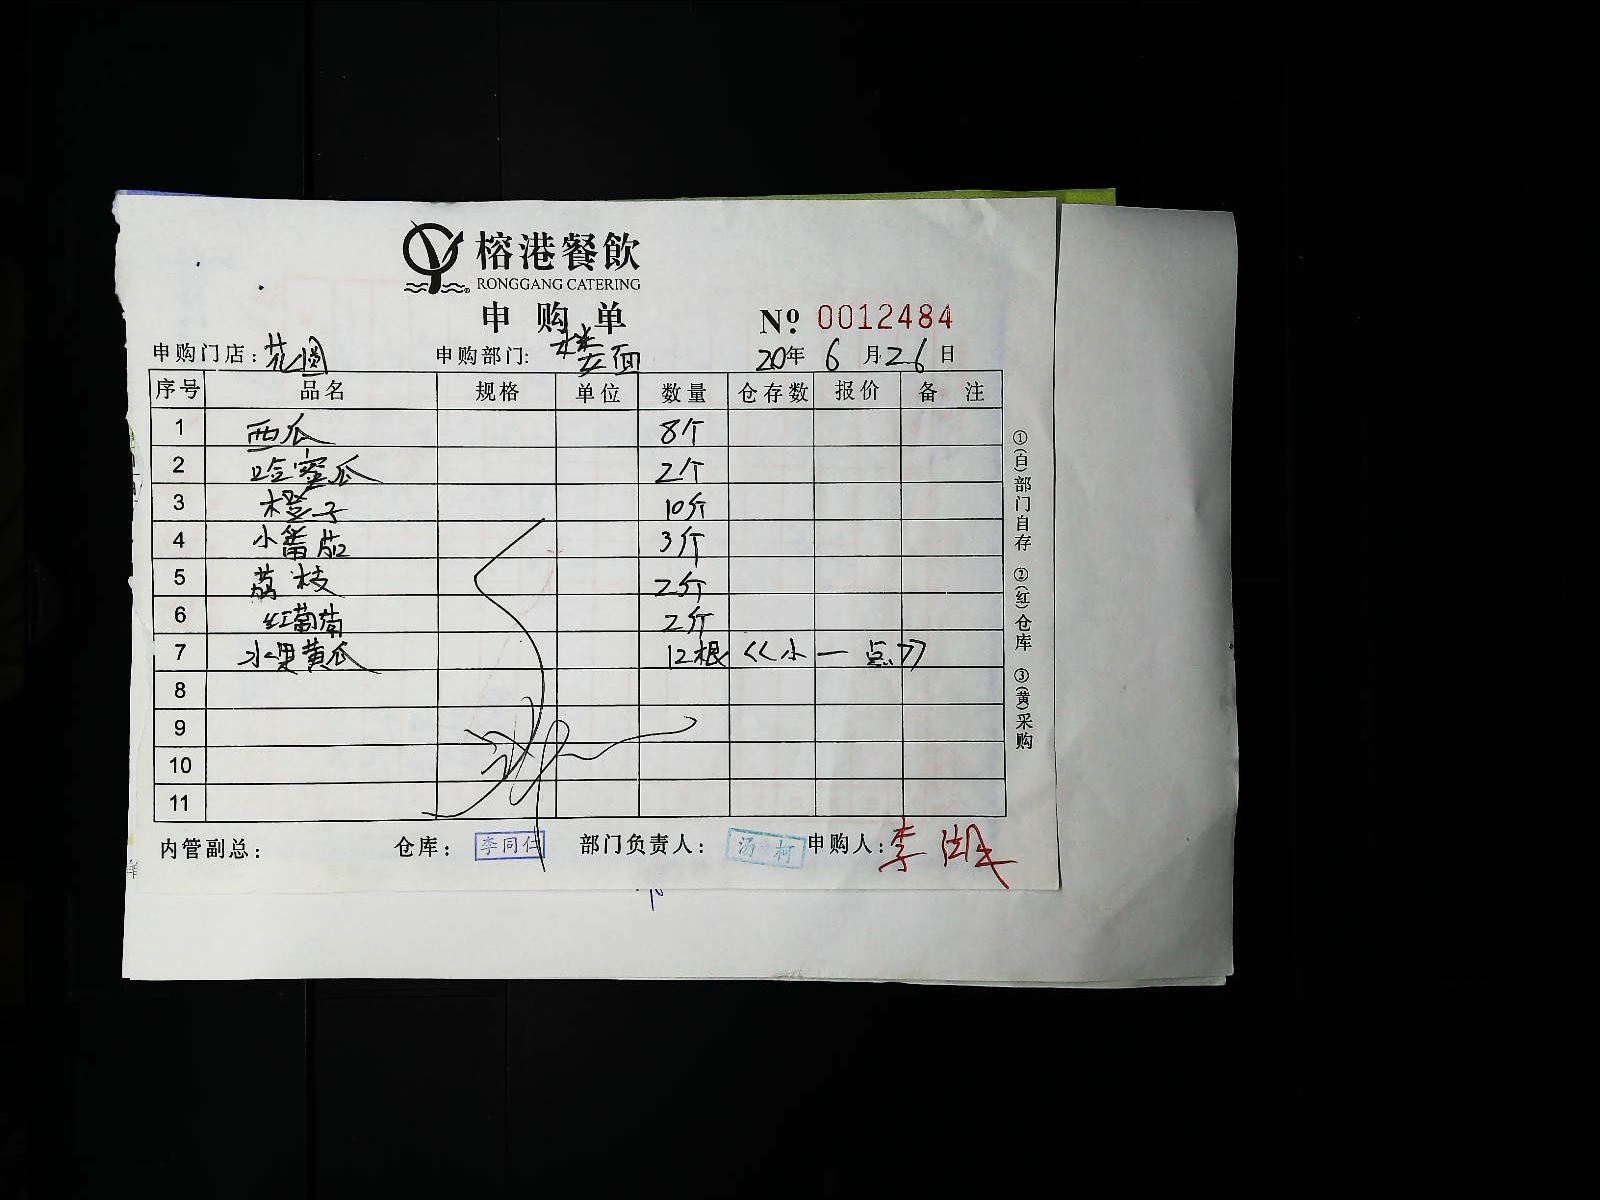 榕港餐飲
RONGGANG CATERING
申购单
№ 0012484
申购门店：花园 申购部门：楼面 20年6月26日
序号 品名 规格 单位 数量 仓存数 报价 备注
1 西瓜 8个
2 哈蜜瓜 2个
3 橙子 10斤
4 小番茄 3斤
5 荔枝 2斤
6 红葡萄 2斤
7 水果黄瓜 12根 《小一点》
8
9
10
11
①(白)部门自存 ②(红)仓库 ③(黄)采购
内管副总： 仓库：李同仁 部门负责人：汤柯 申购人：李